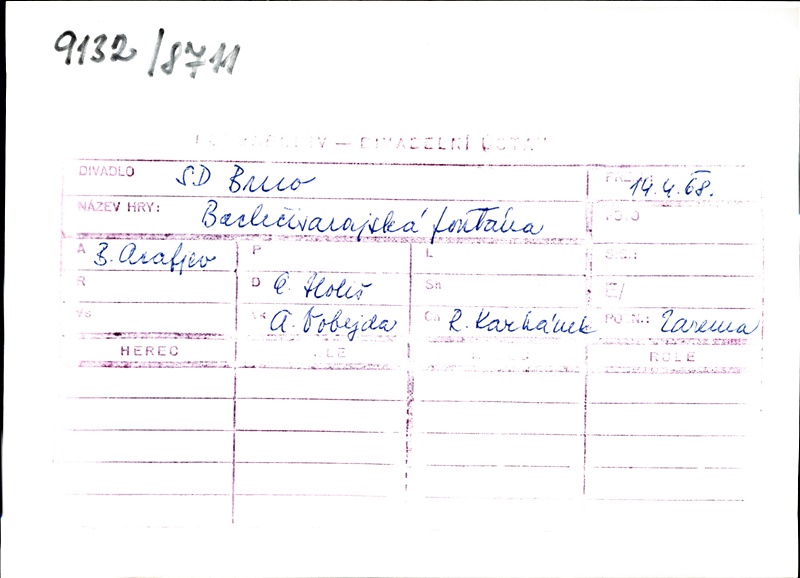 9132/8711
DIVADELNÍ ÚSTAV
DIVADLO SD Brno 14.4.68.
NÁZEV HRY: Bachčisarajská fontána
A B. Asafjev P L S.C.:
R D O. Šk E/
VS A. Vobejda Ch R. Karhánek POZN.: Zarema
HEREC ROLE